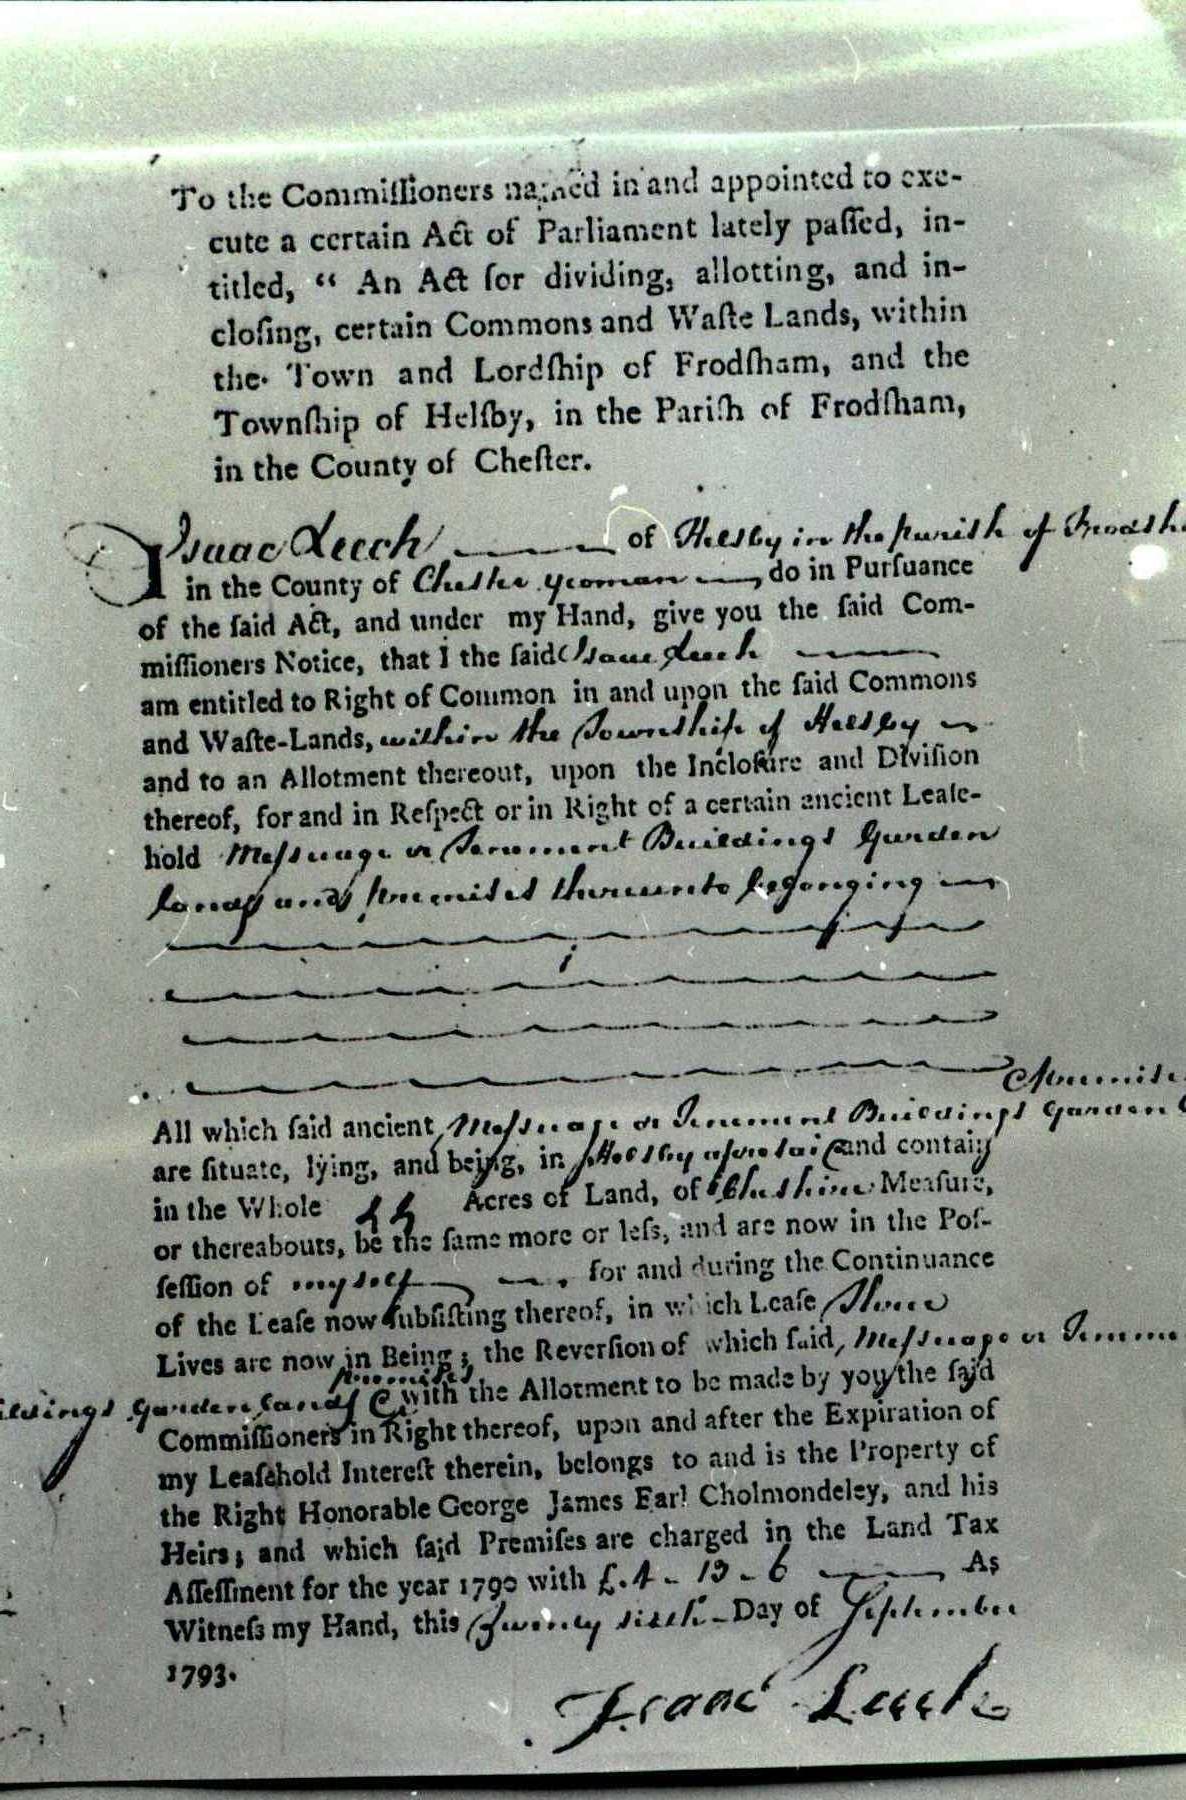 To the Commiſſioners named in and appointed to exe-
cute a certain Act of Parliament lately paſſed, in-
titled, “ An Act for dividing, allotting, and in-
cloſing, certain Commons and Waſte Lands, within
the Town and Lordſhip of Frodſham, and the
Townſhip of Helſby, in the Pariſh of Frodſham,
in the County of Cheſter.
I Isaac Leech of Helsby in the parish of Frodsh
in the County of Chester yeoman do in Purſuance
of the ſaid Act, and under my Hand, give you the ſaid Com-
miſſioners Notice, that I the ſaid Isaac Leech
am entitled to Right of Common in and upon the ſaid Commons
and Waſte-Lands, within the Township of Helsby
and to an Allotment thereout, upon the Incloſure and Diviſion
thereof, for and in Reſpect or in Right of a certain ancient Leaſe-
hold Meſsuage or Tenement Buildings Garden
lands and premises thereunto belonging
& premise
All which ſaid ancient Meſsuage or Tenement Buildings Garden
are ſituate, lying, and being, in Helsby aforesaid and contain
in the Whole Acres of Land, of Cheshire Meaſure,
or thereabouts, be the ſame more or leſs, and are now in the Poſ-
ſeſſion of myself for and during the Continuance
of the Leaſe now ſubſiſting thereof, in which Leaſe Three
Lives are now in Being; the Reverſion of which ſaid Meſsuage or Teneme
premises
ildings Garden lands & with the Allotment to be made by you the ſaid
Commiſſioners in Right thereof, upon and after the Expiration of
my Leaſehold Intereſt therein, belongs to and is the Property of
the Right Honorable George James Earl Cholmondeley, and his
Heirs; and which ſaid Premiſes are charged in the Land Tax
Aſſeſſment for the year 1790 with £.4-13-6 As
Witneſs my Hand, this Twenty sixth Day of September
1793.
Isaac Leech